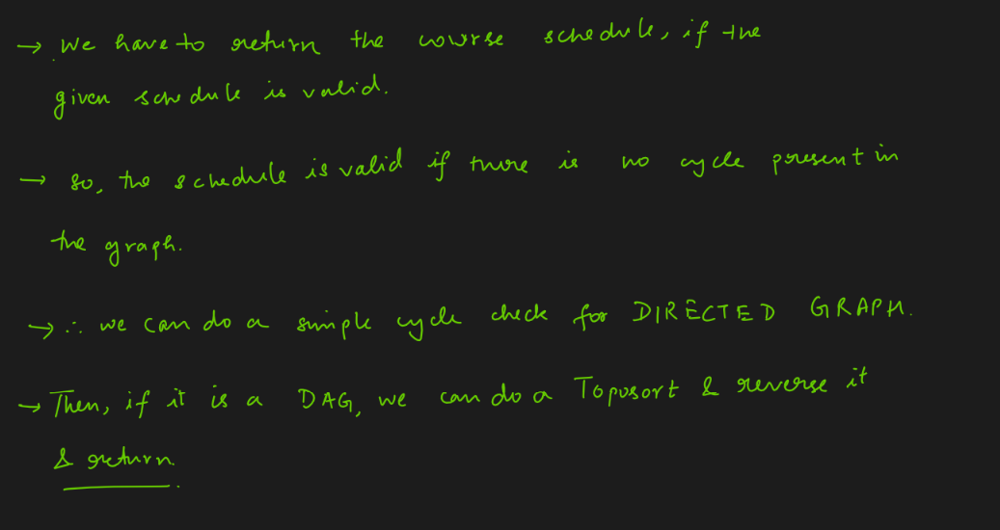 → We have to return the course schedule, if the
given schedule is valid.
→ So, the schedule is valid if there is no cycle present in
the graph.
→ ∴ we can do a simple cycle check for DIRECTED GRAPH.
→ Then, if it is a DAG, we can do a Toposort & reverse it
& return.